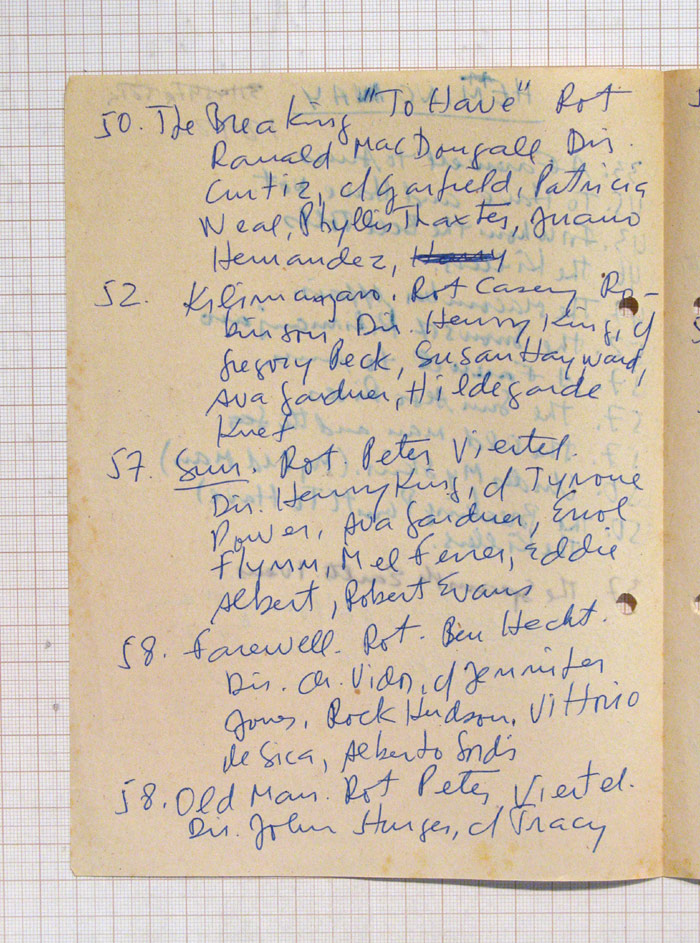 50. The Breaking "To Have" Rot
Ranald MacDougall Dir.
Curtiz, c/ Garfield, Patricia
Neal, Phyllis Thaxter, Juano
Hernandez,
52. Kilimanjaro. Rot Casey Ro-
binson, Dir. Henry King, c/
Gregory Peck, Susan Hayward,
Ava Gardner, Hildegarde
Knef
57. Sun Rot. Peter Viertel.
Dir. Henry King, c/ Tyrone
Power, Ava Gardner, Errol
Flynn, Mel Ferrer, Eddie
Albert, Robert Evans
58. Farewell. Rot. Ben Hecht.
Dir. Ch. Vidor, c/ Jennifer
Jones, Rock Hudson, Vittorio
de Sica, Alberto Sordi
58. Old Man. Rot Peter Viertel.
Dir. John Sturges, c/ Tracy